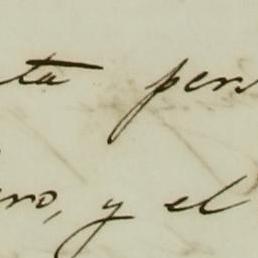 ta per
ro, y el